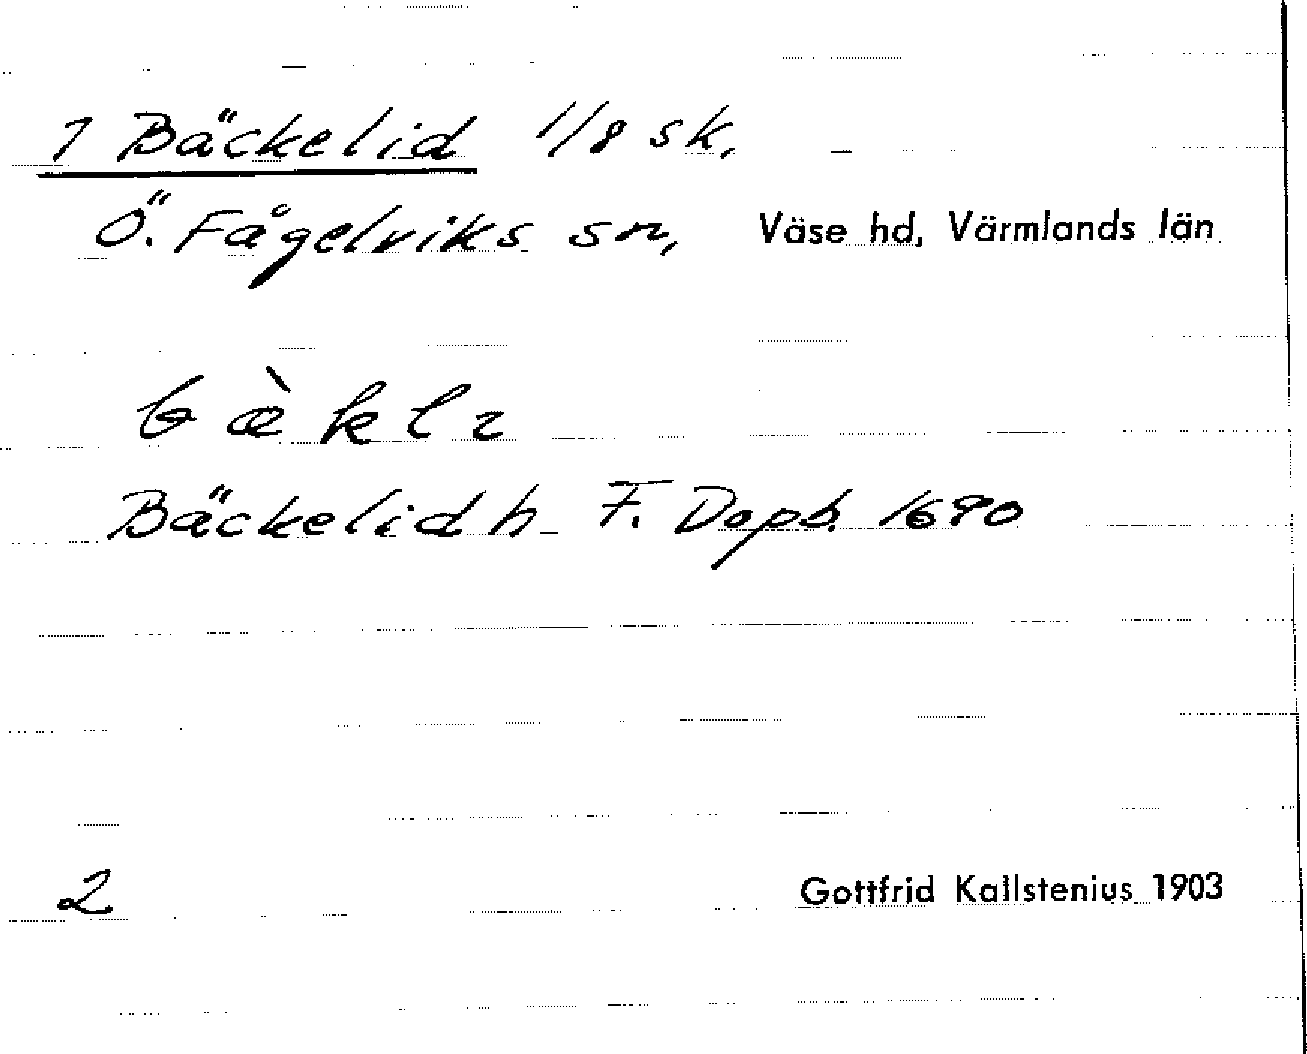 1 Bäckelid 1/8 sk.
Ö. Fågelviks sn, Väse hd, Värmlands län
bæ̀klı
Bäckelid h_ F. Dopb. 1690
2 Gottfrid Kallstenius 1903